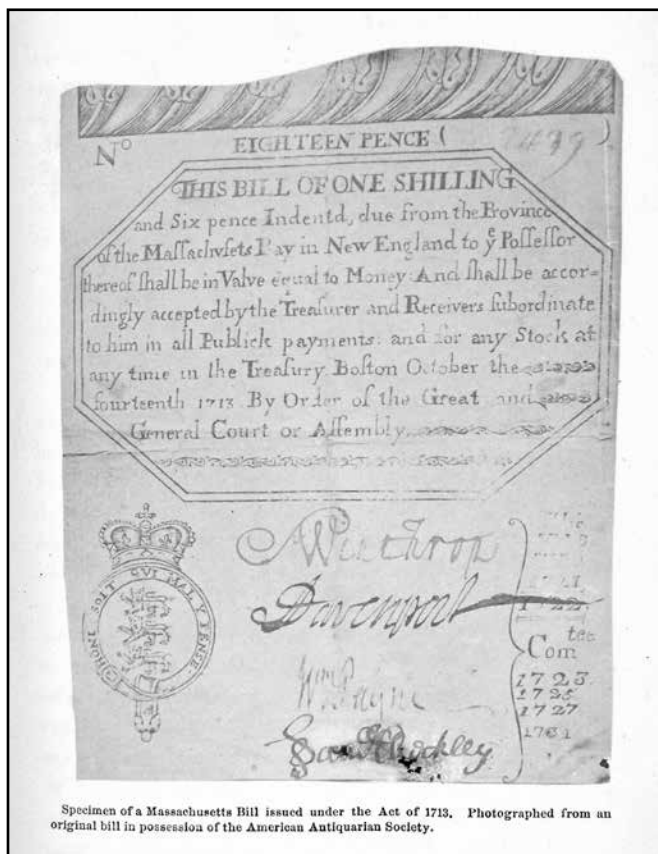 Nº EIGHTEEN PENCE ( )
THIS BILL OF ONE SHILLING
and Six pence Indentd, due from the Province
of the Maſſachvſets Pay in New England to yͤ Poſſeſſor
thereof ſhall be in Valve equal to Money: And ſhall be accor-
dingly accepted by the Treaſurer and Receivers ſubordinate
to him in all Publick payments: and for any Stock at
any time in the Treaſury. Boſton October the
fourteenth 1713 By Order of the Great and
General Court or Aſſembly
HONI SOIT QVI MAL Y PENSE
Winthrop
Davenport
Wm Payne
1722
Comtee
1723
1725
1727
1731
Specimen of a Massachusetts Bill issued under the Act of 1713. Photographed from an
original bill in possession of the American Antiquarian Society.